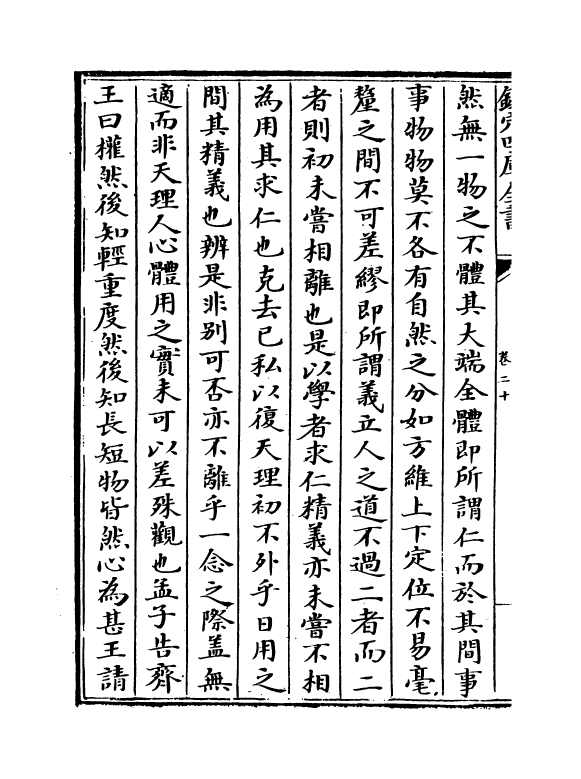 欽定四庫全書
卷二十
然無一物之不體其大端全體即所謂仁而於其間事
事物物莫不各有自然之分如方維上下定位不易毫
釐之間不可差繆即所謂義立人之道不過二者而二
者則初未嘗相離也是以學者求仁精義亦未嘗不相
為用其求仁也克去已私以復天理初不外乎日用之
間其精義也辨是非别可否亦不離乎一念之際蓋無
適而非天理人心體用之實未可以差殊觀也孟子告齊
王曰權然後知輕重度然後知長短物皆然心為甚王請